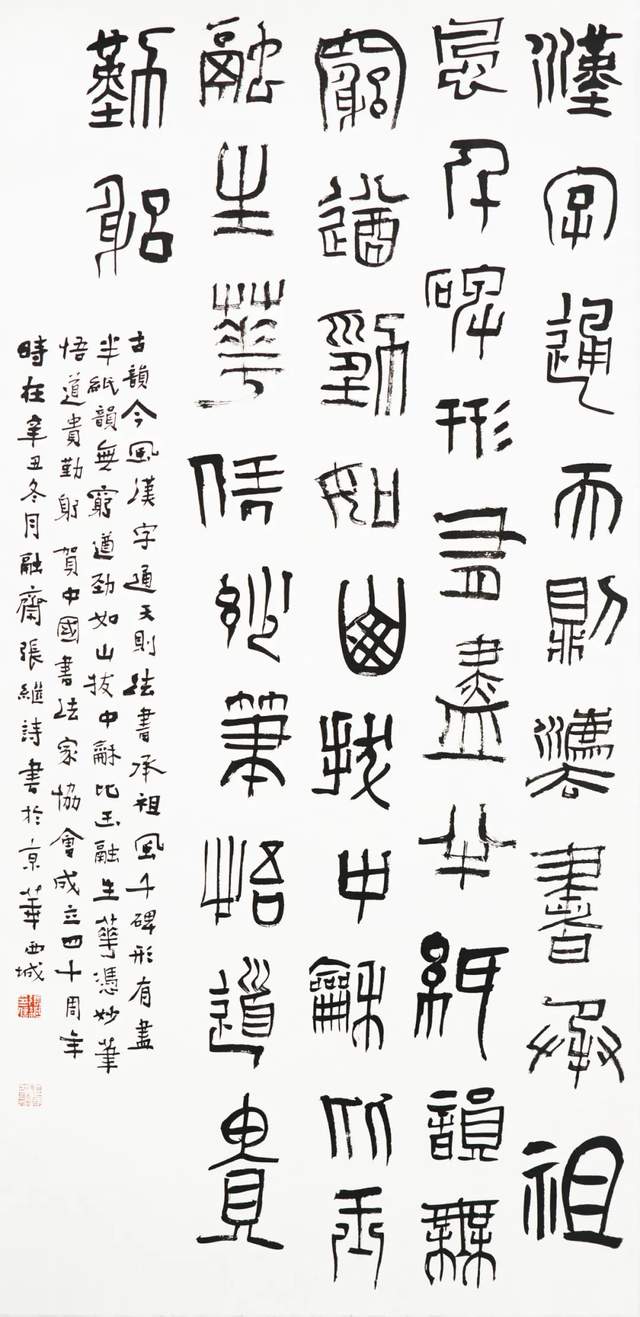 漢字通天則灋書承祖
風千碑形有盡半紙韻無
窮遒勁如山拔中龢比玉
融生華憑妙筆悟道貴
勤躬
古韻今風漢字通天則法書承祖風千碑形有盡
半紙韻無窮遒勁如山拔中龢比玉融生華憑妙筆
悟道貴勤躬賀中國書法家協會成立四十周年
時在辛丑冬月融齋張継詩書於京華西城